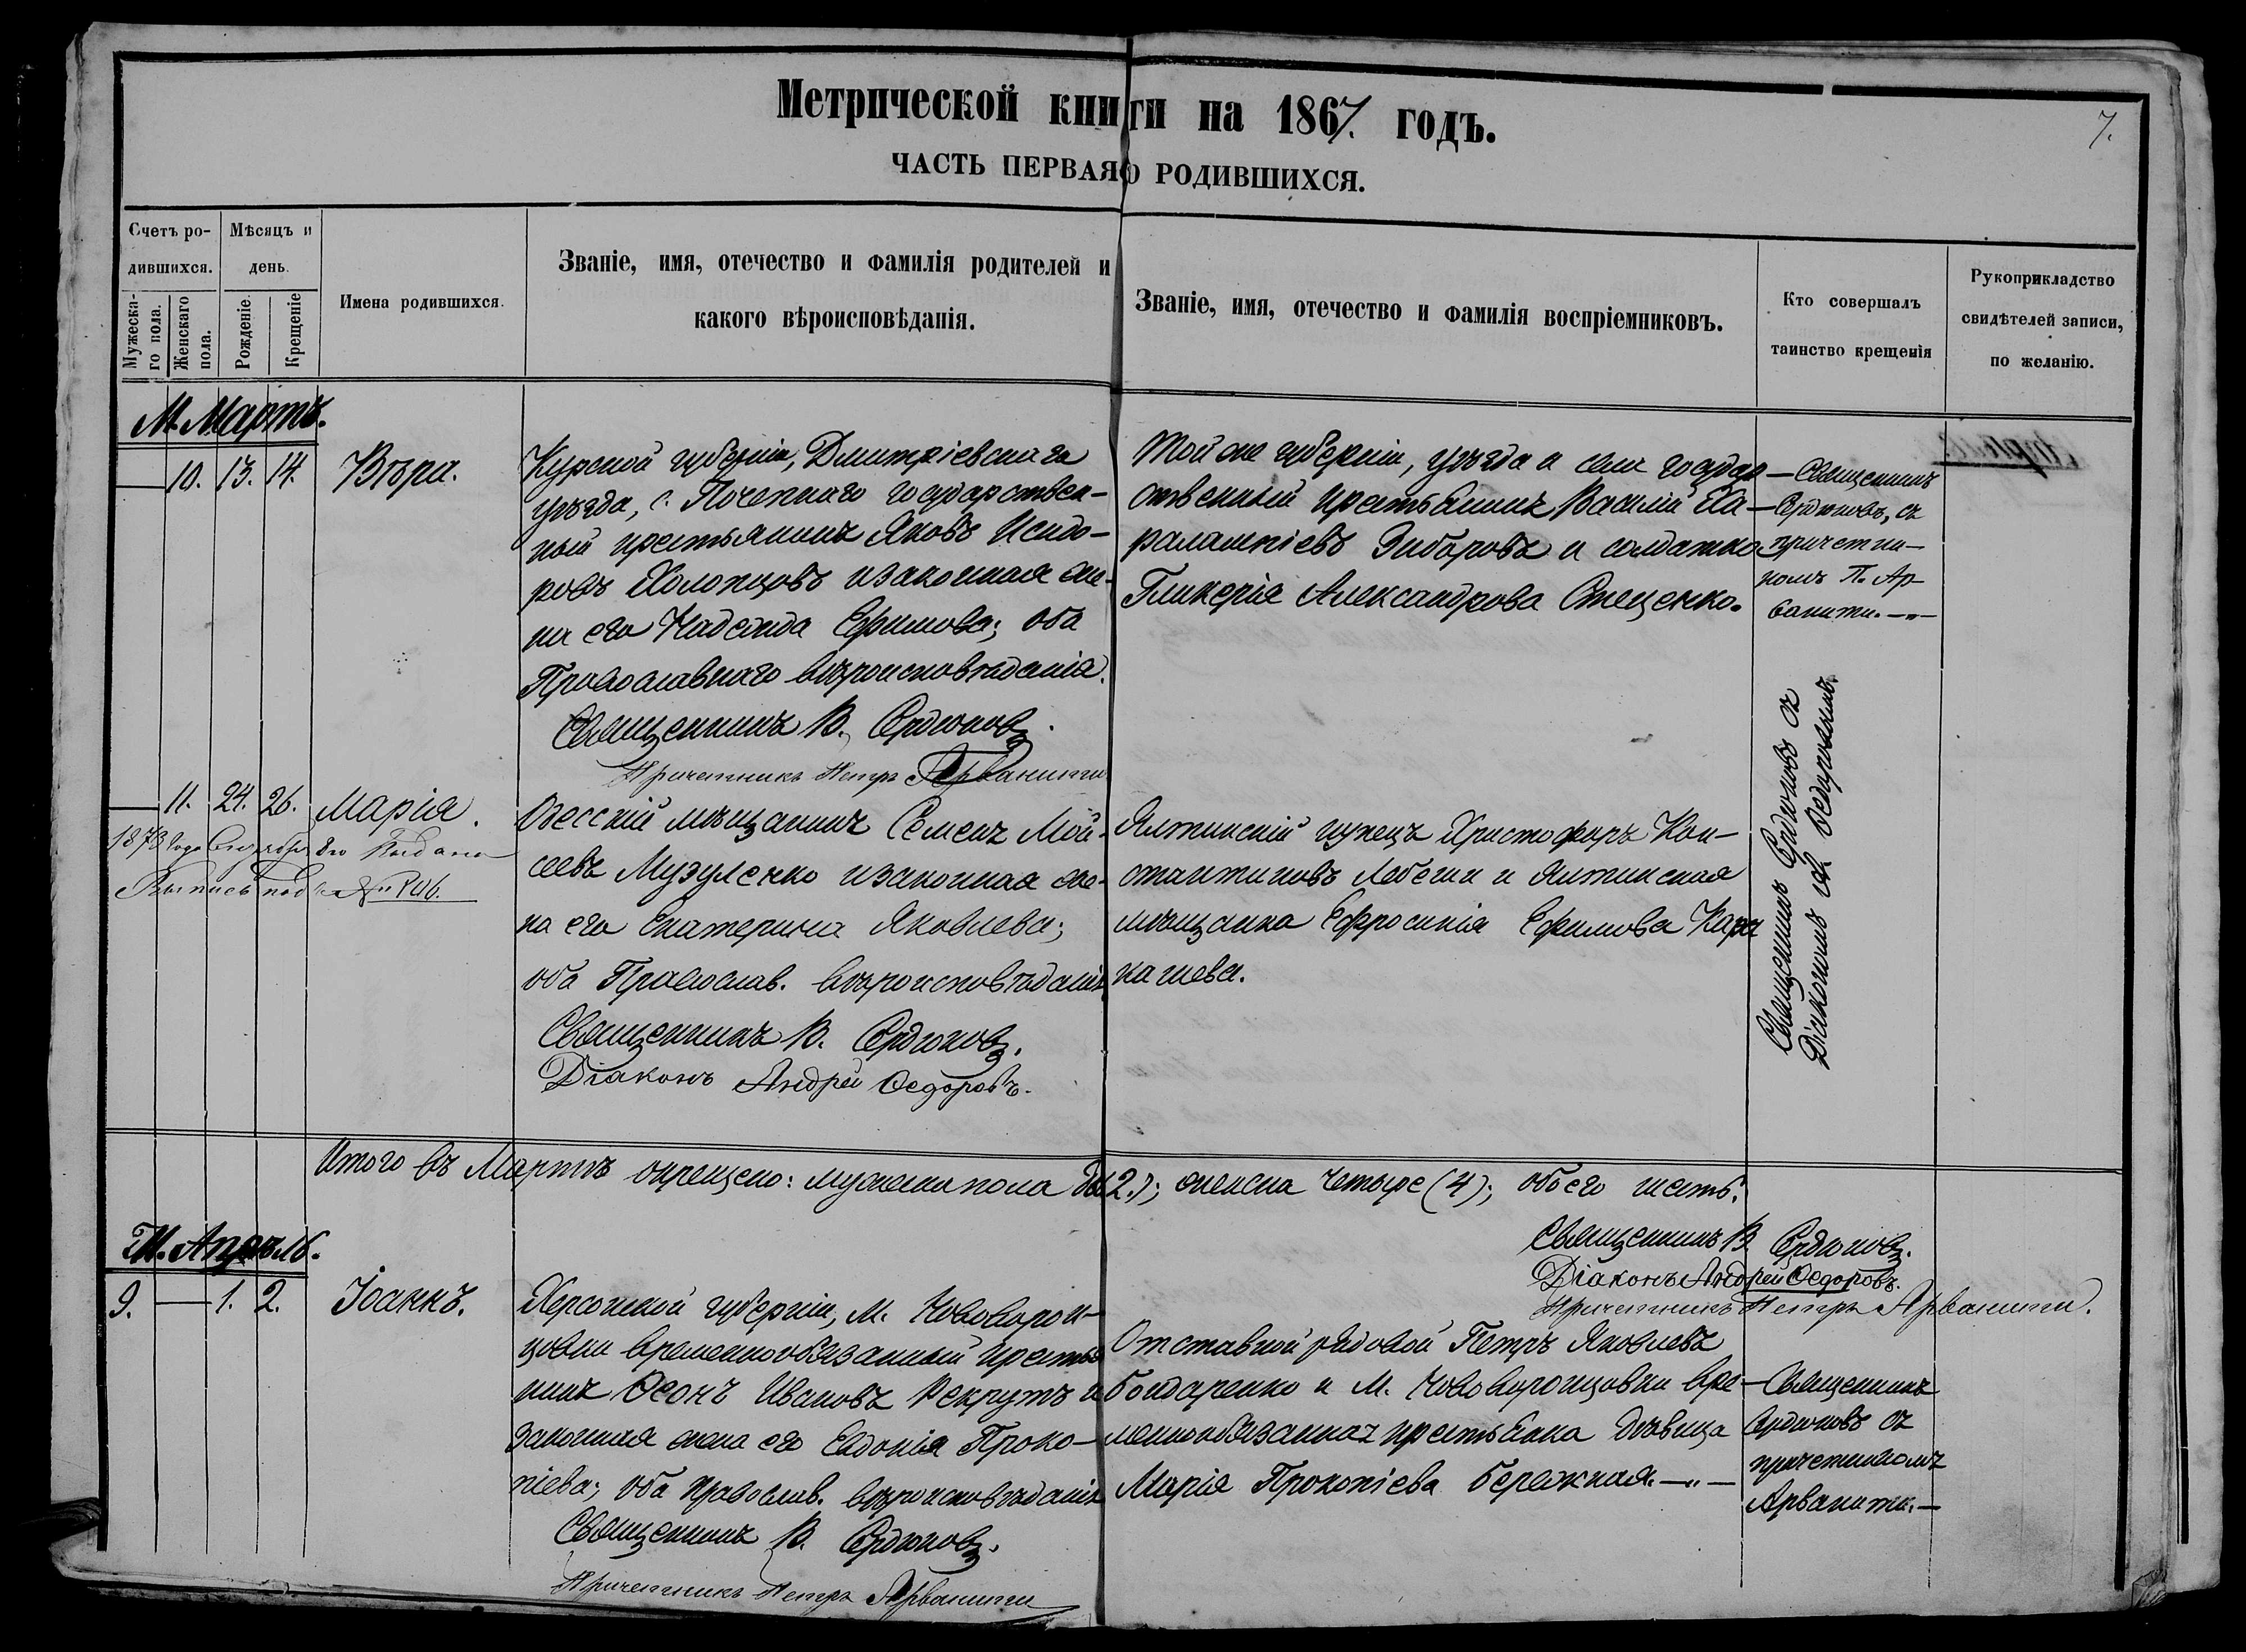 Метрической книги на 1867. годъ.
7.
ЧАСТЬ ПЕРВАЯ О РОДИВШИХСЯ.
Счетъ ро-
дившихся.
Мужеска-
го пола.
Женскаго
пола.
Мѣсяцъ и
день.
Рожденіе.
Крещеніе
Имена родившихся.
Званіе, имя, отечество и фамилія родителей и
какого вѣроисповѣданія.
Званіе, имя, отечество и фамилія воспріемниковъ.
Кто совершалъ
таинство крещенія
Рукоприкладство
свидѣтелей записи,
по желанію.
М. Мартъ.
— 10. 13. 14. Вѣра.
Курской губерніи, Дмитріевскаго
уѣзда, с. Почепнаго государствен-
ный крестьянинъ Яковъ Исидо-
ровъ Холопцовъ и законная же-
на его Надежда Ефимова; оба
Православнаго вѣроисповѣданія.
Священникъ В. Сердюковъ.
Причетникъ Петръ Арванити
Той же губерніи, уѣзда и села государ-
ственный крестьянинъ Василій Ха-
ралампіевъ Зиборовъ и солдатка
Гликерія Александрова Стеценко.
— Священникъ
— Сердюковъ, съ
причетни-
комъ П. Ар-
ванити. —"—
— 11. 24. 26. Марія.
1873 года Сентября 8го Выдана
Выпись под № 106.
Одесскій мѣщанинъ Семенъ Мой-
сеевъ Музуленко и законная же-
на его Екатерина Яковлева;
оба Православ. вѣроисповѣданія
Священникъ В. Сердюковъ.
Діаконъ Андрей Ѳедоровъ.
Ялтинскій купецъ Христофоръ Кон-
стантиновъ Лебеши и Ялтинская
мѣщанка Ефросинія Ефимова Кара
кашева.
Священникъ Сердюковъ съ
Діакономъ А. Ѳедоровымъ.
Итого въ Мартѣ окрещено: мужеска пола два (2.); женска четыре (4); обоего шесть.
Священникъ В. Сердюковъ.
Діаконъ Андрей Ѳедоровъ.
Причетникъ Петръ Арванити.
М. Апрѣль.
9. — 1. 2. Іоаннъ.
Херсонской губерніи, М. Нововорон-
цовки временнообязанный крестья
нинъ Ѳеонъ Ивановъ Рекрутъ и
законная жена его Евдокія Проко-
піева; оба Православ. вѣроисповѣданія
Священникъ В. Сердюковъ.
Причетникъ Петръ Арванити
Отставной рядовой Петръ Яковлевъ
Бондаренко и М. Нововоронцовки вре-
меннообязанная крестьянка дѣвица
Марія Прокопіева Бережная. —"—
— Священникъ
Сердюковъ съ
причетникомъ
Арванити. —